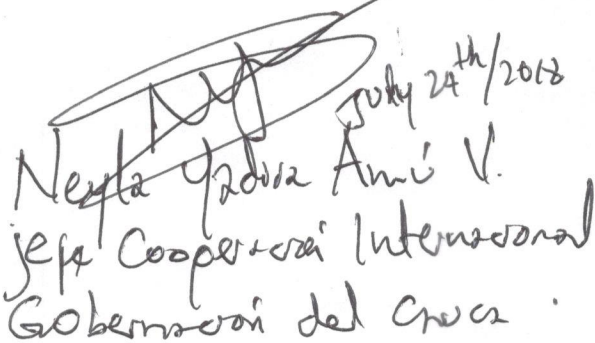 July 24th/2018
Neyla Yadira Amú V.
jefa Cooperación Internacional
Gobernación del Cauca.